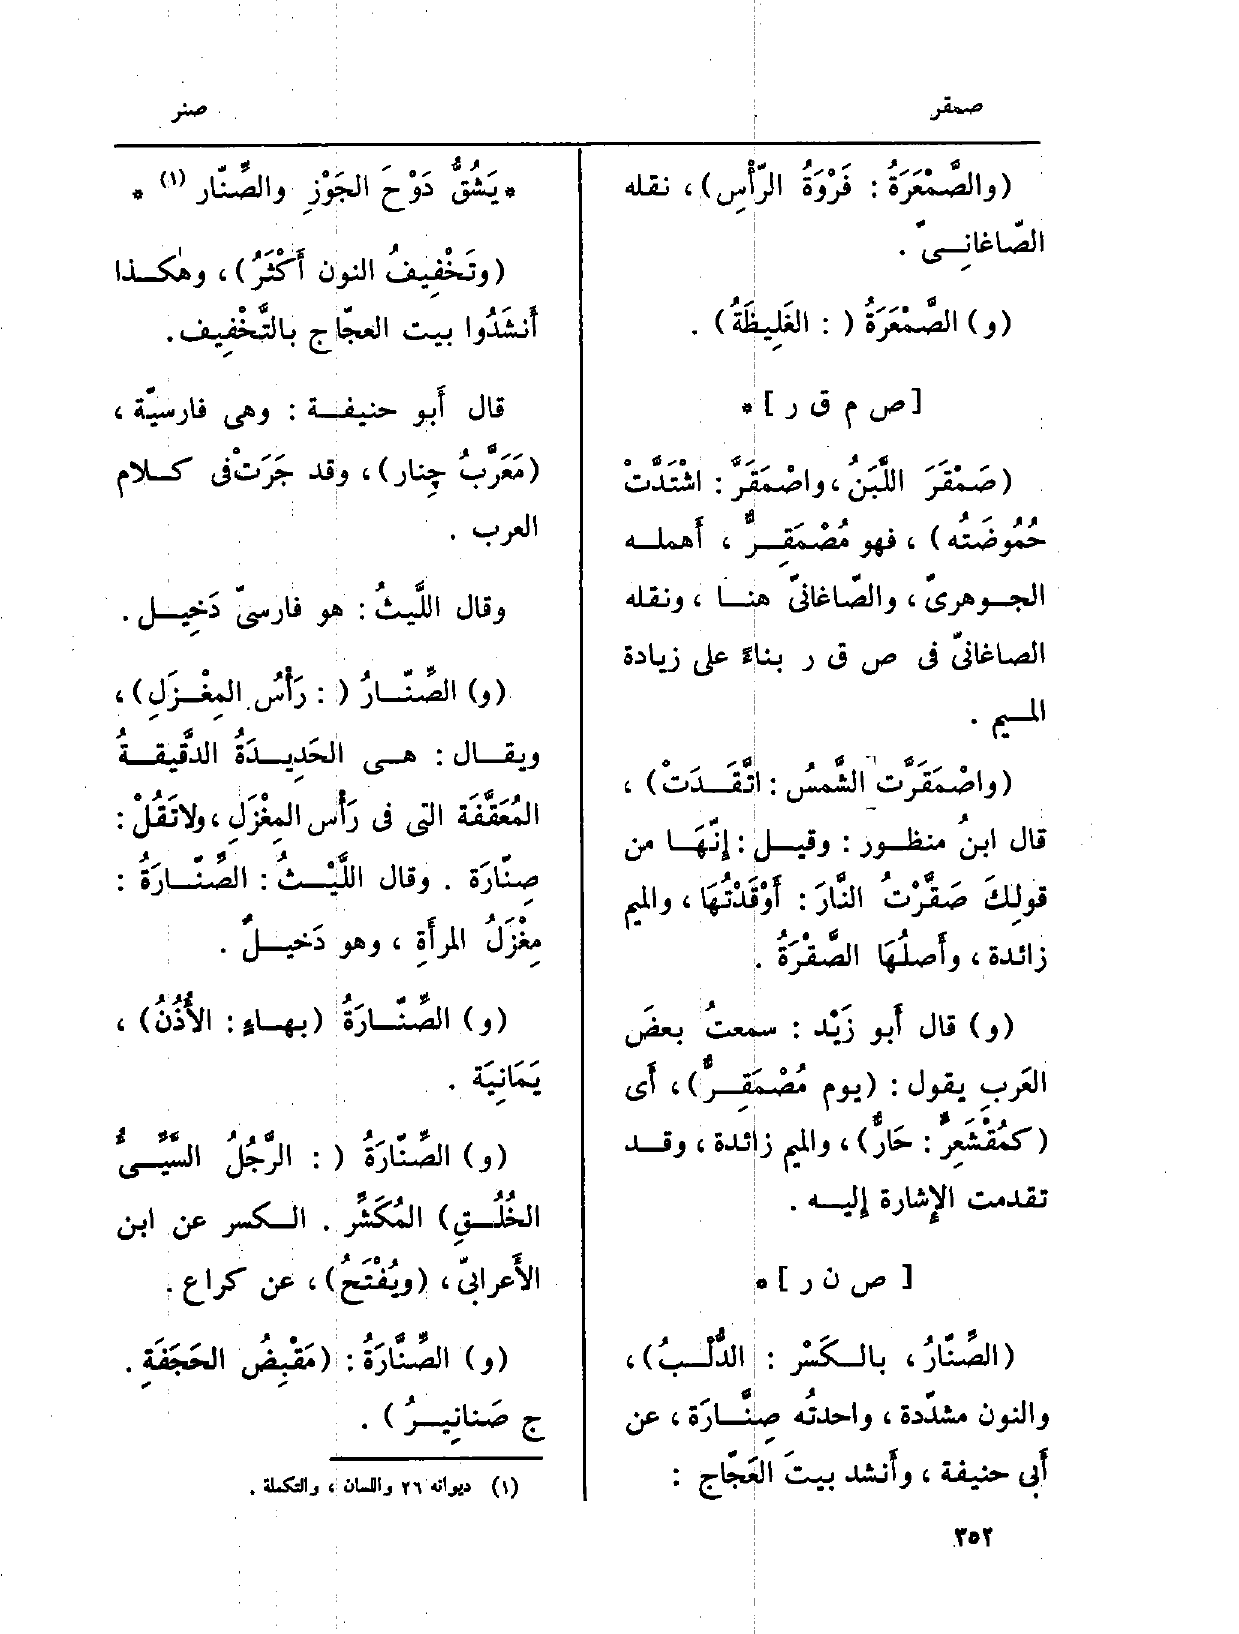 صمقر
صنر
(والصَّمْعَرَةُ : فَرْوَةُ الرّأْسِ) ، نقله
الصّاغانِـىّ .
(و) الصَّمْعَرَةُ ( : الغَلِيظَةُ) .
[ ص م ق ر ] *
(صَمْقَرَ اللَّبَنُ ، واصْمَقَرَّ : اشْتَدَّتْ
حُمُوضَتُه) ، فهو مُصْمَقِـرٌّ ، أَهمله
الجـوهرىّ ، والصّاغانىّ هنـا ، ونقله
الصاغانىّ فى ص ق ر بناءً على زيادة
المـيم .
(واصْمَقَرَّت الشَّمْسُ : اتَّقَـدَتْ) ،
قال ابنُ منظـور : وقيـل : إِنّهَـا من
قولِكَ صَقَّرْتُ النَّارَ : أَوْقَدْتُهَا ، والميم
زائدة ، وأَصلُهَا الصَّقْرَةُ .
(و) قال أَبو زَيْد : سمعتُ بعضَ
العَربِ يقول : (يوم مُصْمَقِـرٌّ) ، أَى
(كمُقْشَعِرٍّ : حَارٌّ) ، والميم زائدة ، وقـد
تقدمت الإِشارة إِليـه .
[ ص ن ر ] *
(الصِّنّارُ ، بالـكَسْرِ : الدُّلْـبُ) ،
والنون مشدّدة ، واحدتُه صِنَّـارَة ، عن
أَبى حنيفة ، وأَنشد بيتَ العَجّاج :
* يَشُقُّ دَوْحَ الجَوْزِ والصِّنّار (١) *
(وتَخْفِيفُ النون أَكْثَرُ) ، وهٰكـذا
أَنشَدُوا بيت العجّاج بالتَّخْفِيف .
قال أَبو حنيفـة : وهى فارسيّة ،
(مُعَرَّبُ چِنار) ، وقد جَرَتْ فى كـلام
العرب .
وقال اللَّيثُ : هو فارسىّ دَخِيـل .
(و) الصِّنّـارُ ( : رَأْسُ المِغْـزَلِ) ،
ويقـال : هـى الحَدِيـدَةُ الدَّقِيقـةُ
المُعَقَّفَة التى فى رَأْس المِغْزَلِ ، ولا تَقُلْ :
صِنّارَة . وقال اللَّيْـثُ : الصِّنّـارَةُ :
مِغْزَلُ المرأَةِ ، وهو دَخيـلٌ .
(و) الصِّنّـارَةُ (بهـاءٍ : الأُذُنُ) ،
يَمَانِيَة .
(و) الصِّنّارَةُ ( : الرَّجُلُ السَّيِّـئُ
الخُلُـقِ) المُكَشِّر . الـكسر عن ابن
الأَعرابىّ ، (ويُفْتَحُ) ، عن كراع .
(و) الصِّنَّارَةُ : (مَقْبِضُ الحَجَفَةِ .
ج صَنانِيـرُ ) .
(١) ديوانه ٢٦ واللسان ، والتكملة .
٣٥٢